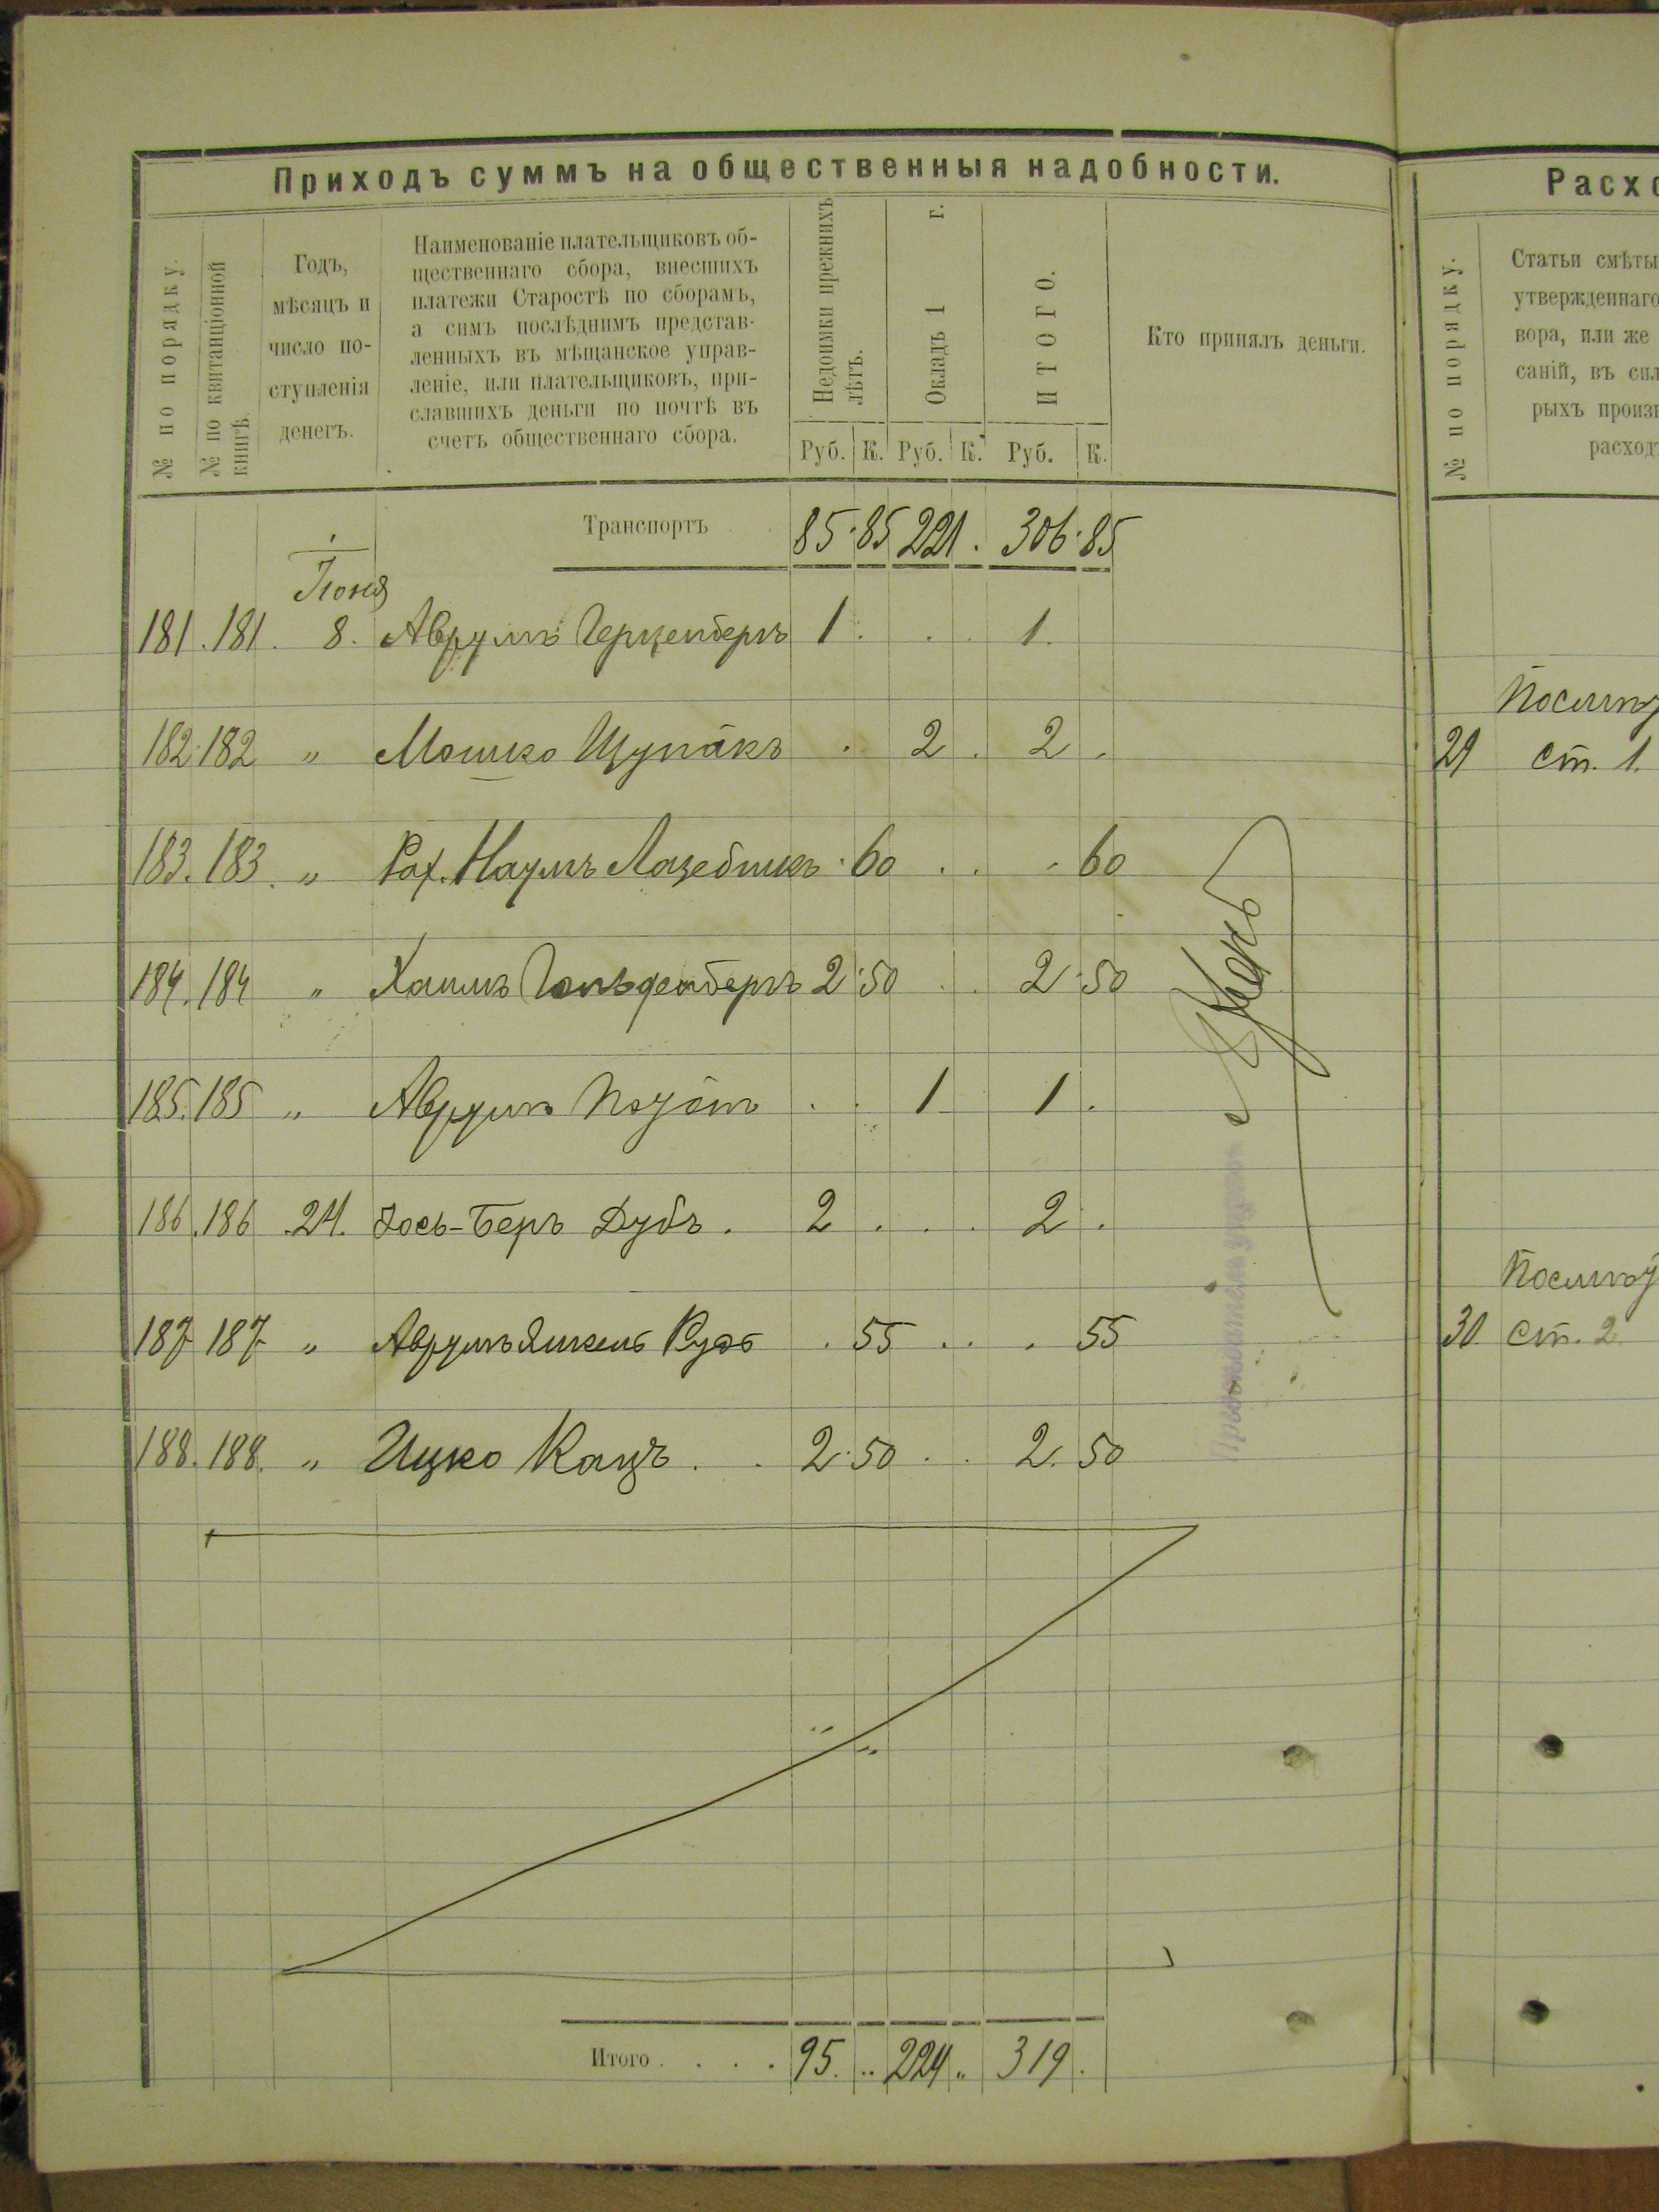 Приходъ суммъ на общественныя надобности.
№ по порядку.
№ по квитанціонной
книгѣ.
Годъ,
мѣсяцъ и
число по-
ступленія
денегъ.
Наименованіе плательщиковъ об-
щественнаго сбора, внесшихъ
платежи Старостѣ по сборамъ,
а симъ послѣднимъ представ-
ленныхъ въ мѣщанское управ-
леніе, или плательщиковъ, при-
славшихъ деньги по почтѣ въ
счетъ общественнаго сбора.
Недоимки прежнихъ
лѣтъ.
Окладъ 1 г.
ИТОГО.
Руб. К. Руб. К. Руб. К.
Кто принялъ деньги.
Транспортъ 85 85 221 . 306 85
Іюня
181. 181. 8. Аврумъ Герценбергъ 1 . . . 1.
182 182 " Мошко Щупакъ . 2 . 2 .
183. 183. " Рах. Наумъ Лазебникъ . 60 . . . 60
184. 184 " Хаимъ Гольденбергъ 2 50 . . 2 50
185. 185 " Аврумъ . . 1 1 .
186. 186 .24. Іось-Беръ Дубъ. 2 . . . 2 .
187 187 " Аврумъ Янкель . 55 . . . 55
188. 188. " Ицко Кацъ . . 2 50 . . 2. 50
Итого . . . . 95. .. 224 .. 319 .
Расхо
№ по порядку.
Статьи смѣты
утвержденнаго
вора, или же
саній, въ сил
рыхъ произв
расход
29 ст. 1.
30 ст. 2